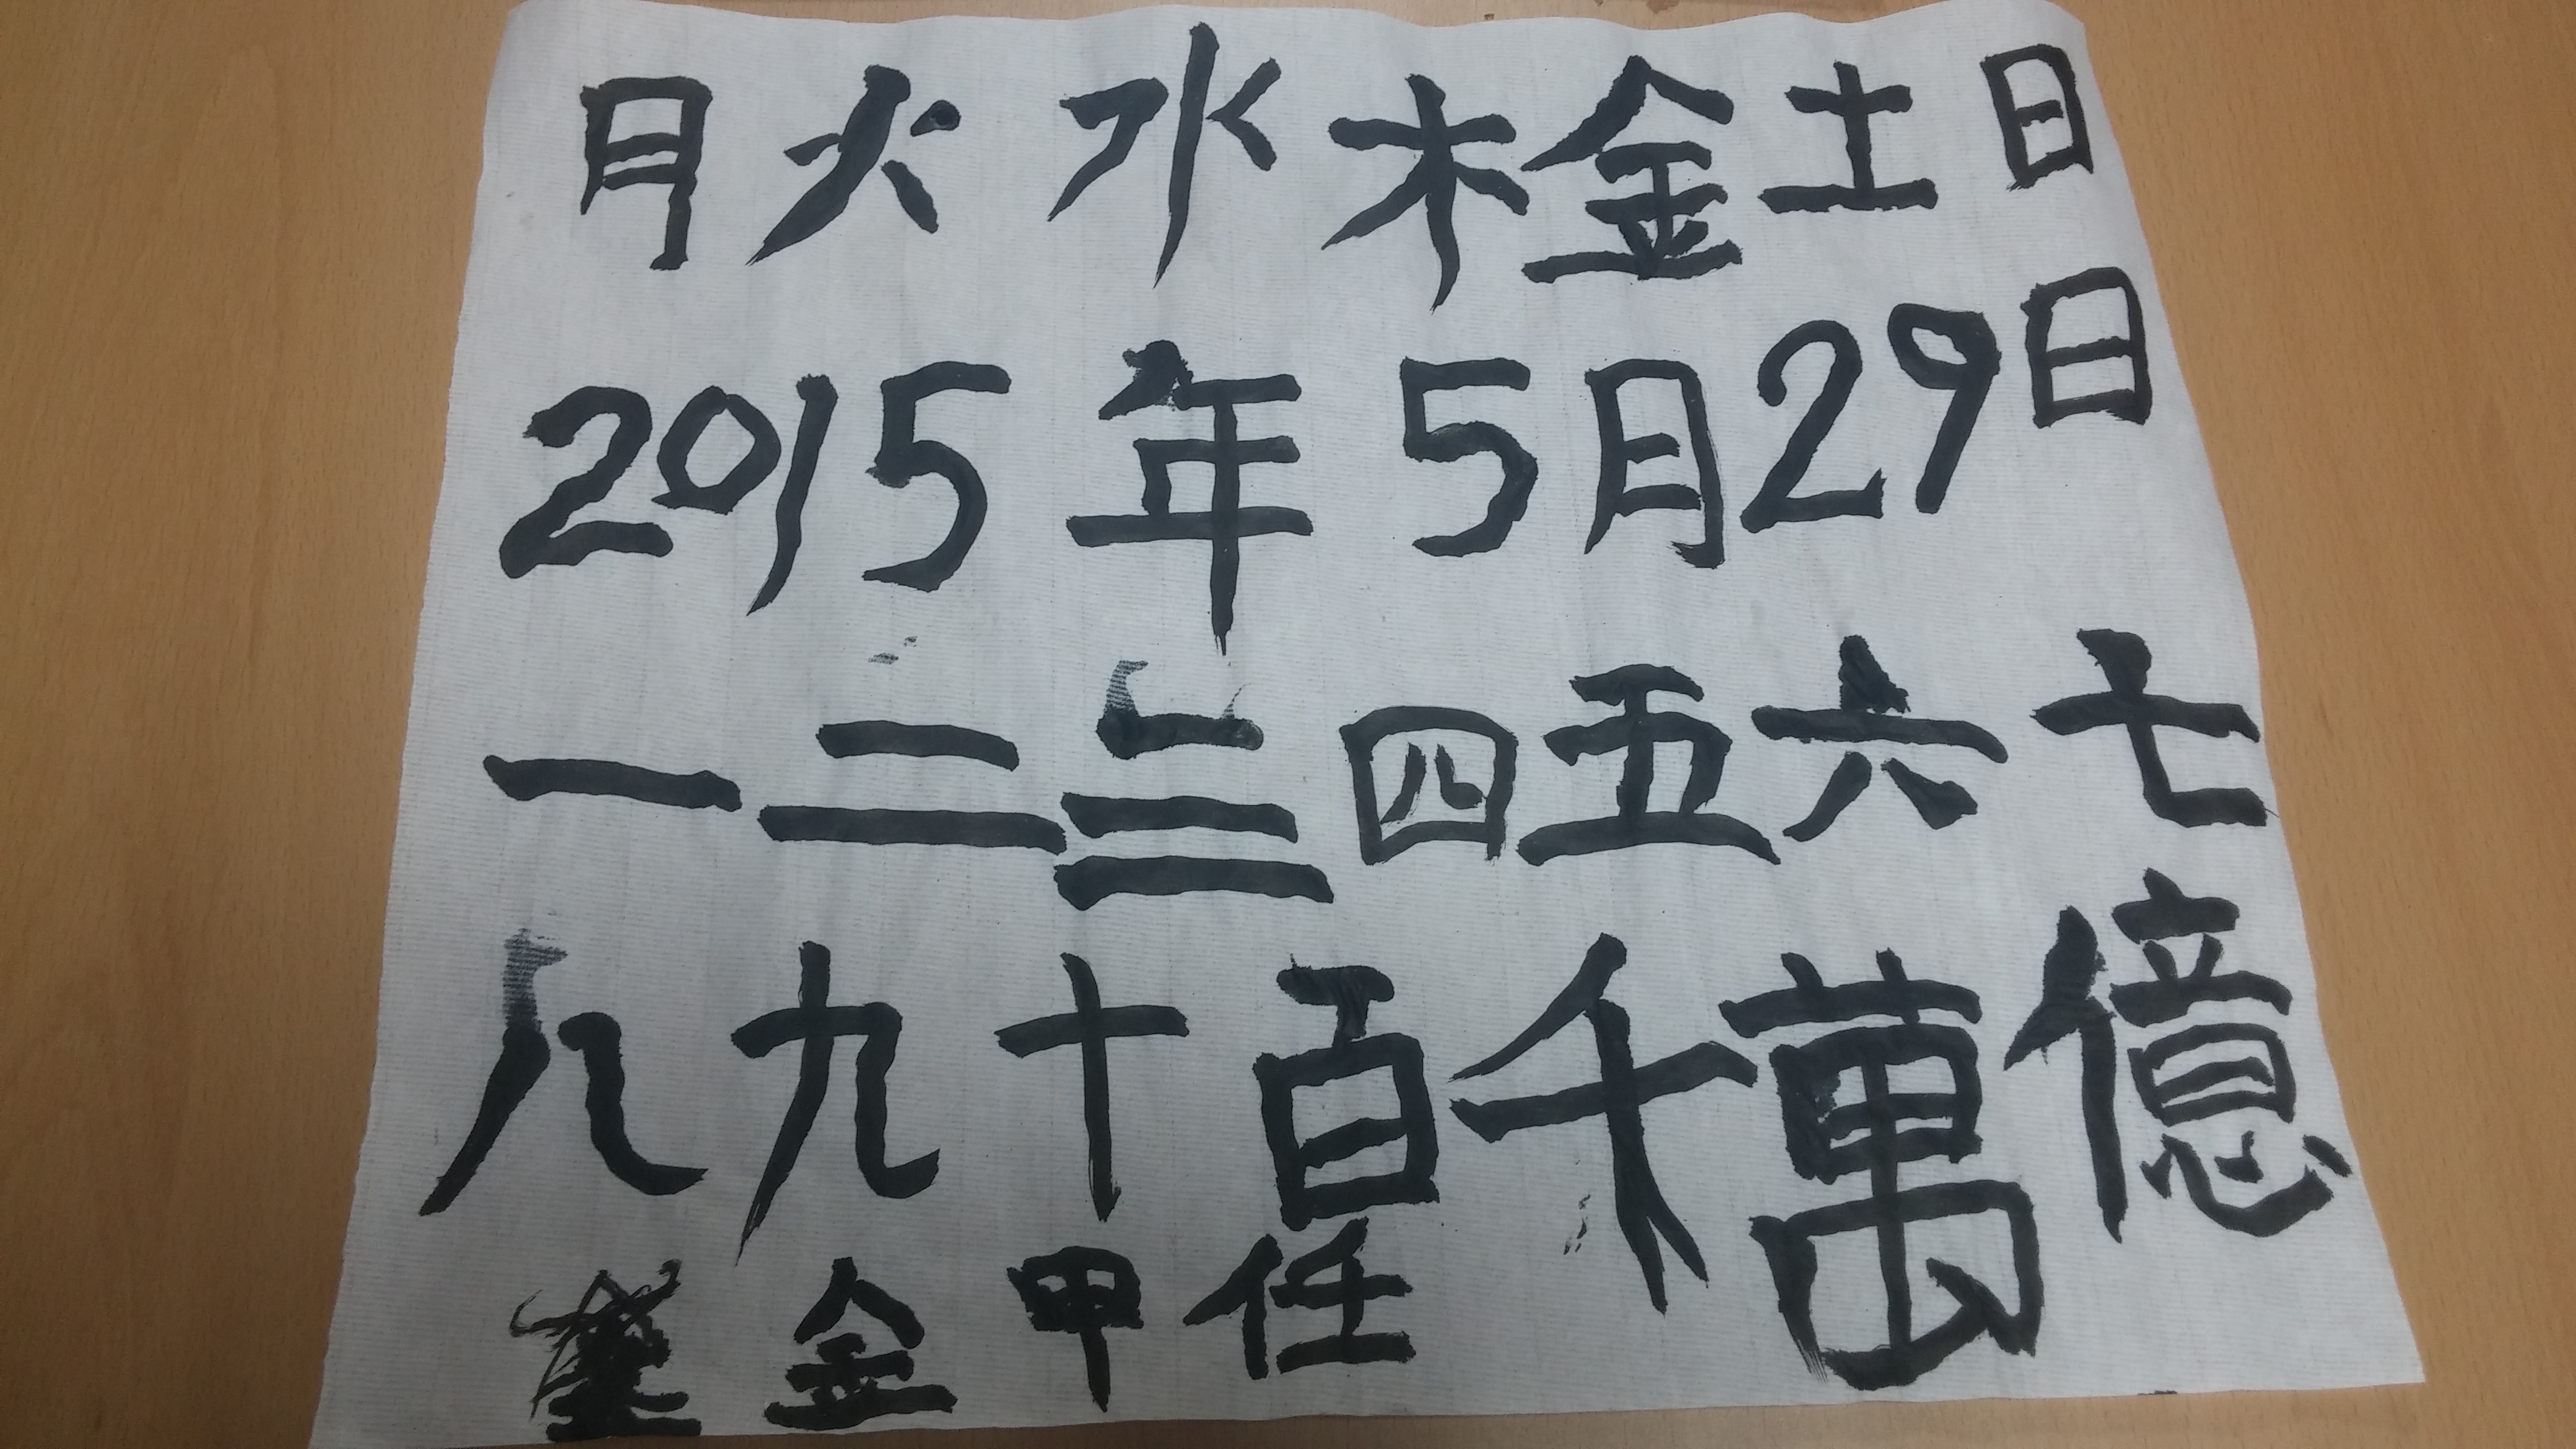 月火水木金土日
2015年5月29日
一二三四五六七
八九十百千萬億
金甲任